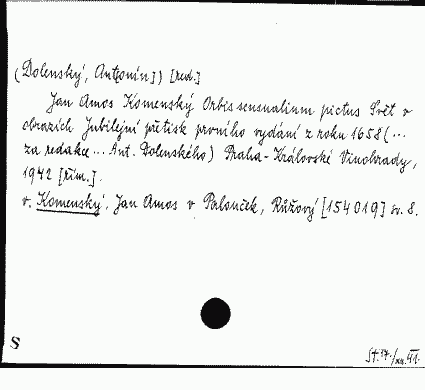 (Dolenský, Antonín]) [red.]
Jan Amos Komenský Orbis sensualium pictus Svět v
obrazích Jubilejní přetisk prvního vydání z roku 1658 (...
za redakce ... Ant. Dolenského) Praha-Královské Vinohrady,
1942 [řím.].
v. Komenský, Jan Amos v Palouček, Růžový [154019] sv. 8.
S